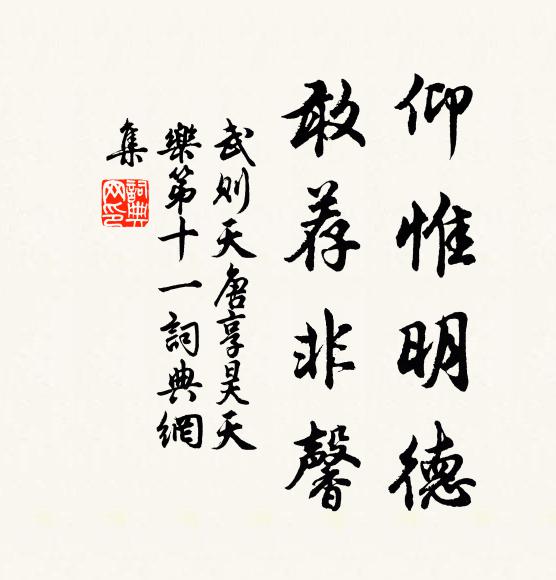 仰惟明德
敢荐非馨
武则天唐享昊天
樂第十一詞典網
集
詞典
网印